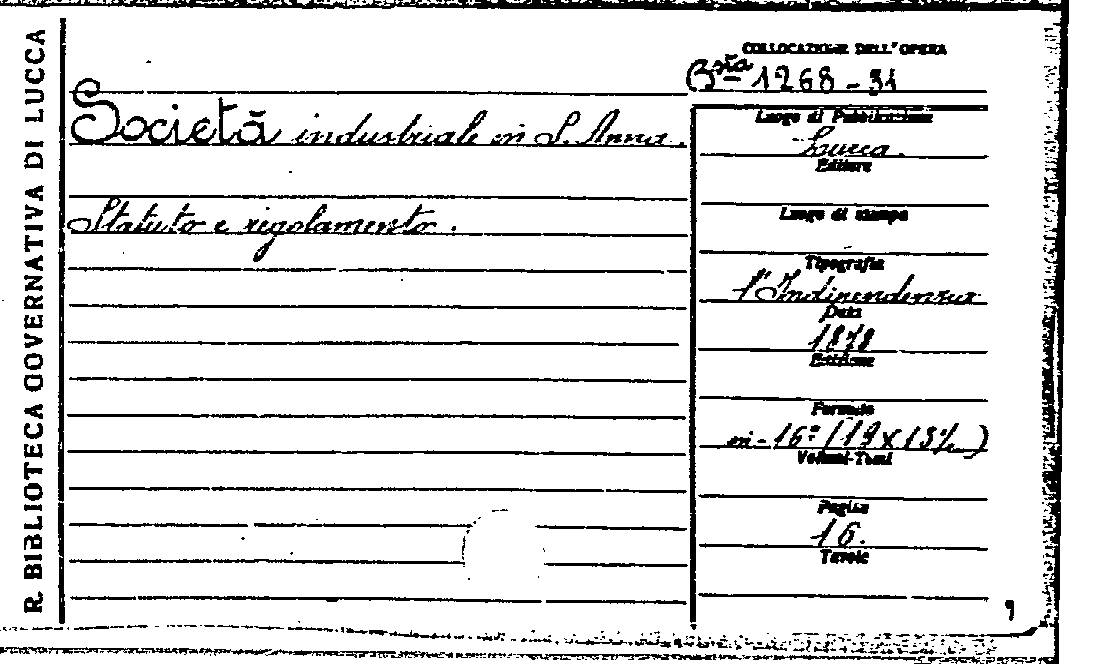 R. BIBLIOTECA GOVERNATIVA DI LUCCA
COLLOCAZIONE DELL'OPERA
Bsta 1268-31
Società industriale in S. Anna.
Statuto e regolamento.
Luogo di Pubblicazione
Lucca.
Editore
Luogo di stampa
Tipografia
l'Indipendenza
Data
1878
Edizione
Formato
in-16º (19x13 )
Volumi-Tomi
Pagine
16.
Tavole